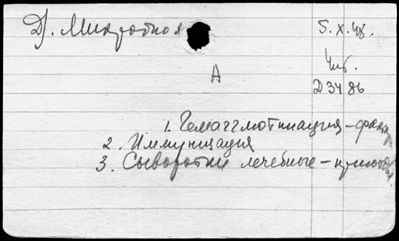 Д. Микробиол
5.X.48.
Чит.
А
D 3486
1. Гемагглютинация –
2. Иммунизация
3. Сыворотки лечебные –